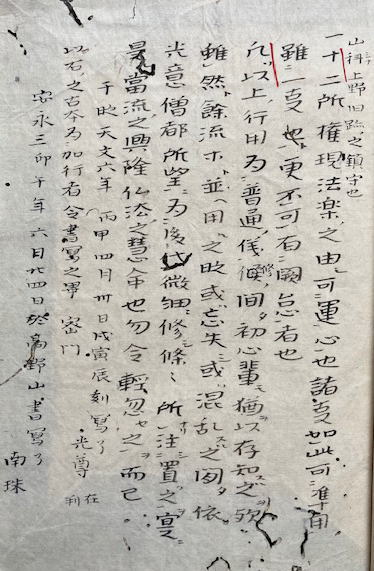 山科上野旧跡之鎮守也
一十二所権現法楽之由可運心也諸事如此可準用
雖一事也更不可有闕怠者也
凡以上行用為普通儀修間初心輩猶以存知之歟
雖然餘流亦並用之時或忘失或混乱之間依
光意僧都所望為後代微細修條〻所注置之寔
是當流之興隆仏法之慧命也勿令軽忽之而已
于時天文六年丙申四月卅日戊寅辰刻写了 光尊 在判
以右之古本為加行者令書寫之畢 密門
安永三 午年六月廿四日於高野山書寫了
南珠